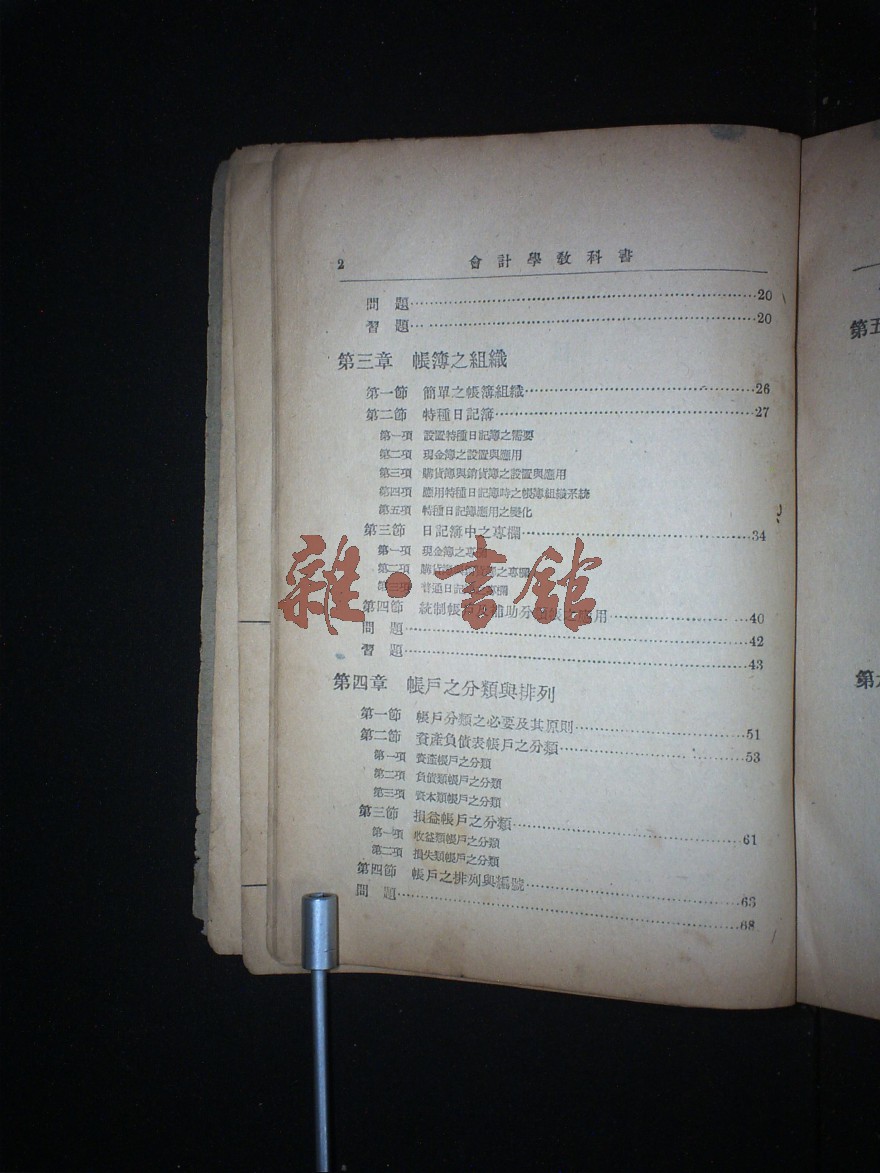 2 會計學教科書
問題 20
習題 20
第三章 帳簿之組織
第一節 簡單之帳簿組織 26
第二節 特種日記簿 27
第一項 設置特種日記簿之需要
第二項 現金簿之設置與應用
第三項 購貨簿與銷貨簿之設置與應用
第四項 應用特種日記簿時之帳簿組織系統
第五項 特種日記簿應用之變化
第三節 日記簿中之專欄 34
第一項 現金簿之專欄
第二項 購貨簿與銷貨簿之專欄
第三項 普通日記簿之專欄
第四節 統制帳戶及補助分類帳之應用 40
問題 42
習題 43
第四章 帳戶之分類與排列
第一節 帳戶分類之必要及其原則 51
第二節 資產負債表帳戶之分類 53
第一項 資產帳戶之分類
第二項 負債類帳戶之分類
第三項 資本類帳戶之分類
第三節 損益帳戶之分類 61
第一項 收益類帳戶之分類
第二項 損失類帳戶之分類
第四節 帳戶之排列與編號 65
問題 68
第五
第六
雜·書館